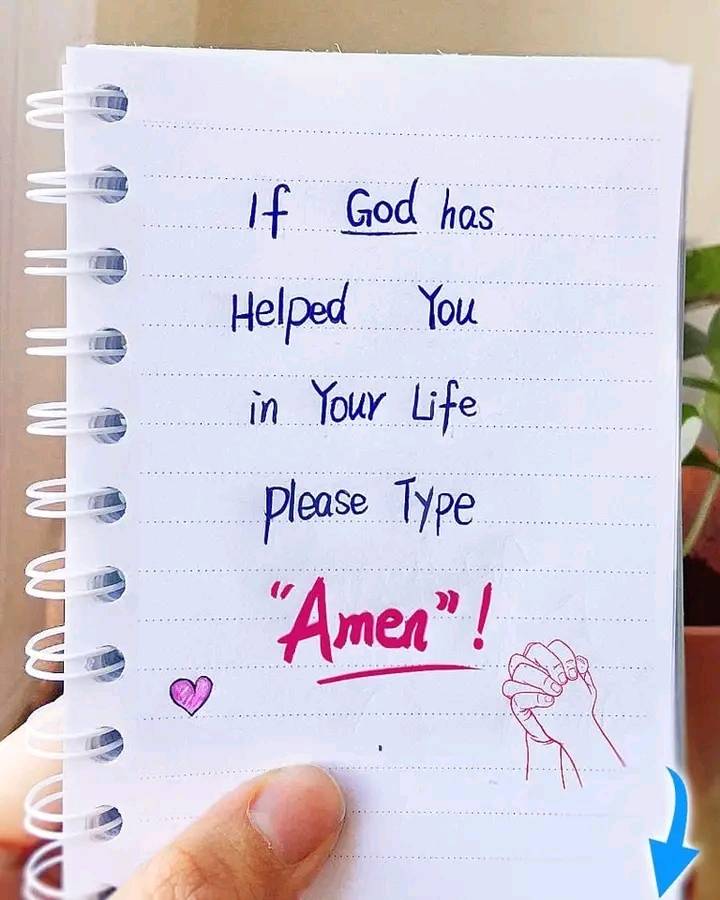 If God has
Helped You
in Your Life
please Type
"Amen"!